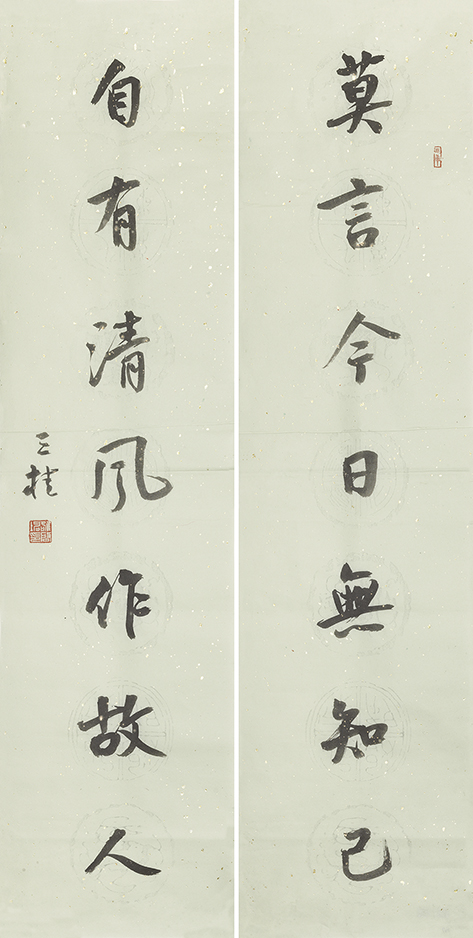 莫言今日無知己
自有清風作故人
三桂